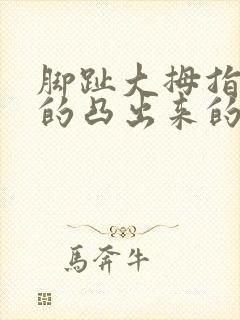 脚趾大拇指
的凸出来的
馬奔牛